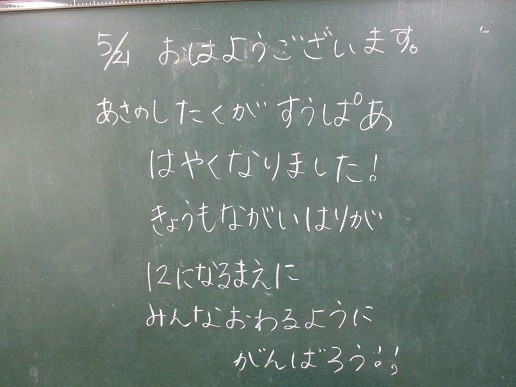 5/21 おはようございます。
あさのしたくが すうぱあ
はやくなりました!
きょうもながいはりが
12になるまえに
みんなおわるように
がんばろう!!